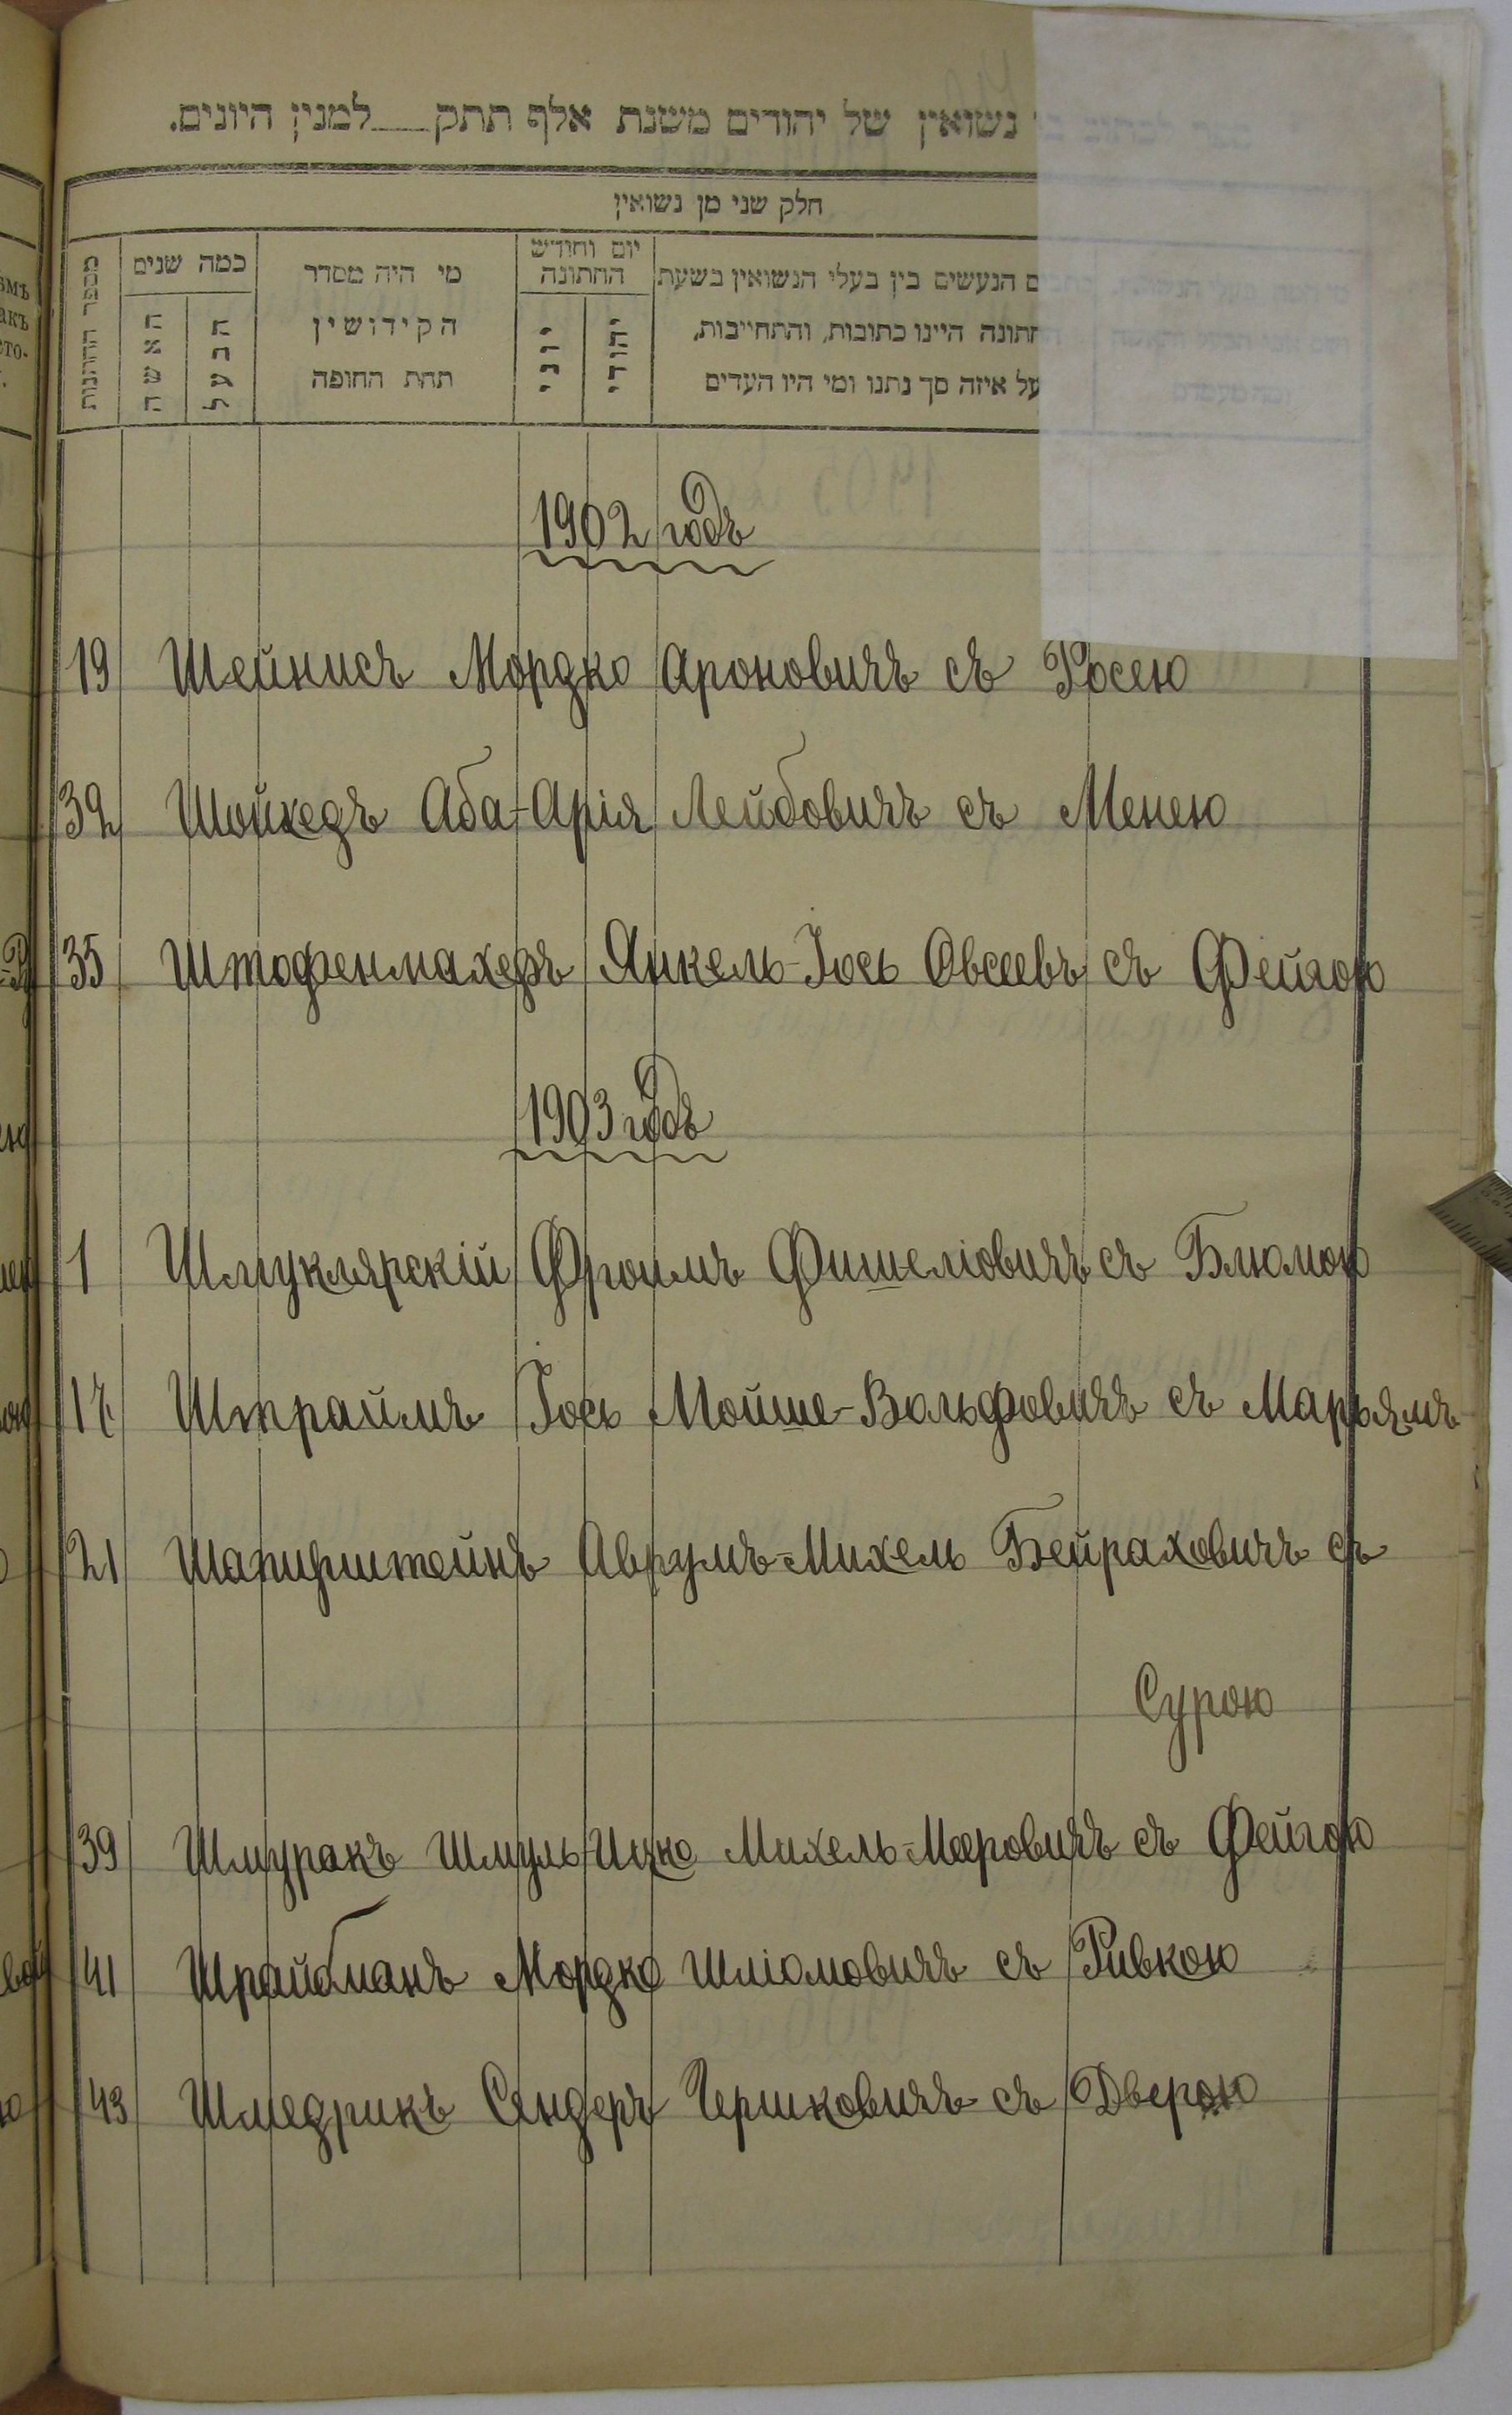 נשואין של יהודים משנת אלף תתק למנין היונים.
חלק שני מן נשואין
מספר החתונות
כמה שנים
האשה
הבעל
מי היה מסדר
הקידושין
תחת החופה
יום וחודש
החתונה
יוני
יהודי
הנעשים בין בעלי הנשואין בשעת
חתונה היינו כתובות, והתחייבות,
על איזה סך נתנו ומי היו העדים
1902 годъ
19 Шейнисъ Мордко Ароновичъ съ Росею
32 Шойхедъ Аба-Арія Лейбовичъ съ Менею
35 Штофенмахеръ Янкель-Іось Овсеевъ съ Фейгою
1903 годъ
1 Шмуклярскій Фроимъ Фишеліовичъ съ Блюмою
17 Штраймъ Іось Мойше-Вольфовичъ съ Марьямъ
21 Шапирштейнъ Аврумъ-Михель Бейраховичъ съ
Сурою
39 Шмуракъ Шмуль-Ицко Михель-Меровичъ съ Фейгою
41 Шрайбманъ Мордко Шліомовичъ съ Ривкою
43 Шмедрикъ Сендеръ Гершковичъ съ Дверою